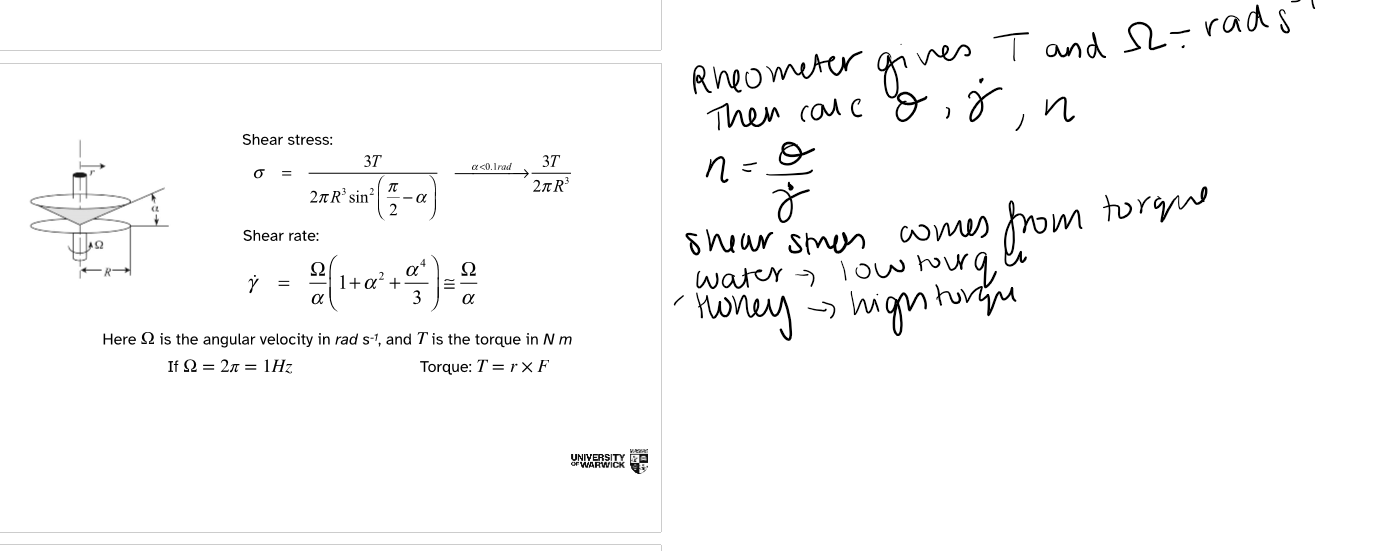 Shear stress:
σ = 3T / 2πR³ sin²(π/2 − α) α<0.1rad → 3T / 2πR³
Shear rate:
γ̇ = Ω/α (1 + α² + α⁴/3) ≅ Ω/α
Here Ω is the angular velocity in rad s⁻¹, and T is the torque in N m
If Ω = 2π = 1Hz Torque: T = r × F
r
α
Ω
R
UNIVERSITY
OF WARWICK
Rheometer gives T and Ω = rad s⁻¹
Then calc σ, γ̇, η
η = σ / γ̇
shear stress comes from torque
water → low
Honey → high